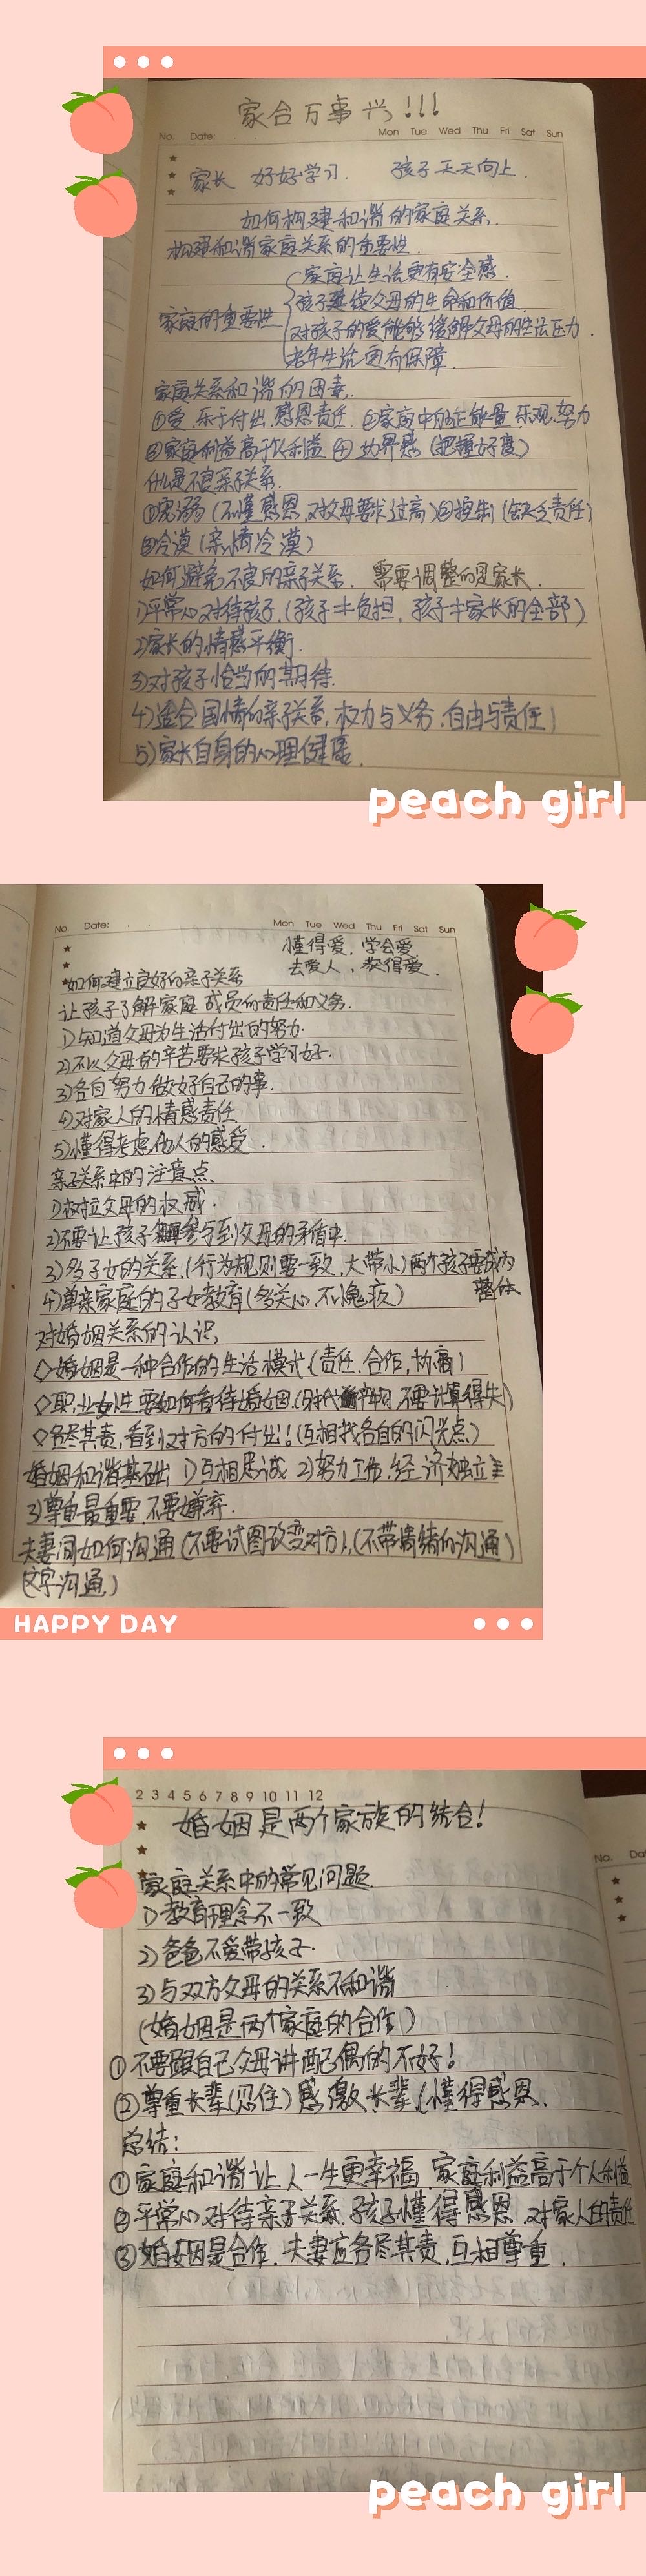 家合万事兴!!!
No. Date: . . Mon Tue Wed Thu Fri Sat Sun
家长 好好学习. 孩子天天向上.
如何构建和谐的家庭关系.
构建和谐家庭关系的重要性.
家庭让生活更有安全感.
孩子延续父母的生命和价值.
家庭的重要性
对孩子的爱能够缓解父母的生活压力.
老年生活更有保障.
家庭关系和谐的因素.
①爱.乐于付出.感恩责任. ②家庭中的正能量.乐观.努力
③家庭利益高于个人利益 ④ 边界感 (把握好度)
什么是不良亲子关系.
①宠溺 (不懂感恩,对父母要求过高) ②控制 (缺乏责任)
③冷漠 (亲情冷漠)
如何避免不良的亲子关系. 需要调整的是家长.
1)平常心对待孩子.(孩子≠负担, 孩子≠家长的全部)
2)家长的情感平衡.
3)对孩子恰当的期待.
4)适合国情的亲子关系,权力与义务.自由与责任!
5)家长自身的心理健康.
peach girl
No. Date: . . Mon Tue Wed Thu Fri Sat Sun
懂得爱.学会爱
去爱人.获得爱.
如何建立良好的亲子关系
让孩子了解家庭 成员的责任和义务.
1)知道父母为生活付出的努力.
2)不以父母的辛苦要求孩子学习好.
3)各自努力做好自己的事.
4)对家人的情感责任
5)懂得考虑他人的感受.
亲子关系中的注意点.
1)树立父母的权威.
2)不要让孩子参与到父母的矛盾中.
3)多子女的关系.(行为规则要一致,大带小)两个孩子要成为
整体
4)单亲家庭的子女教育(多关心,不愧疚)
对婚姻关系的认识.
◇婚姻是一种合作的生活模式.(责任.合作,协商)
◇职业女性要如何看待婚姻.(时代产物,不要计算得失)
◇各尽其责,看到对方的付出!(互相找各自的闪光点)
婚姻和谐基础 1)互相忠诚 2)努力工作.经济独立
3)尊重最重要.不要嫌弃.
夫妻间如何沟通(不要试图改变对方).(不带情绪的沟通)
(文字沟通.)
HAPPY DAY
2 3 4 5 6 7 8 9 10 11 12
婚姻是两个家族的结合!
No. Da
家庭关系中的常见问题.
1)教育理念不一致
2)爸爸不爱带孩子.
3)与双方父母的关系不和谐
(婚姻是两个家庭的合作)
①不要跟自己父母讲配偶的不好!
②尊重长辈(忍住)感激长辈(懂得感恩.
总结:
①家庭和谐让人一生更幸福.家庭利益高于个人利益
②平常心对待亲子关系.孩子懂得感恩.对家人的责任
③婚姻是合作.夫妻应各尽其责,互相尊重.
peach girl